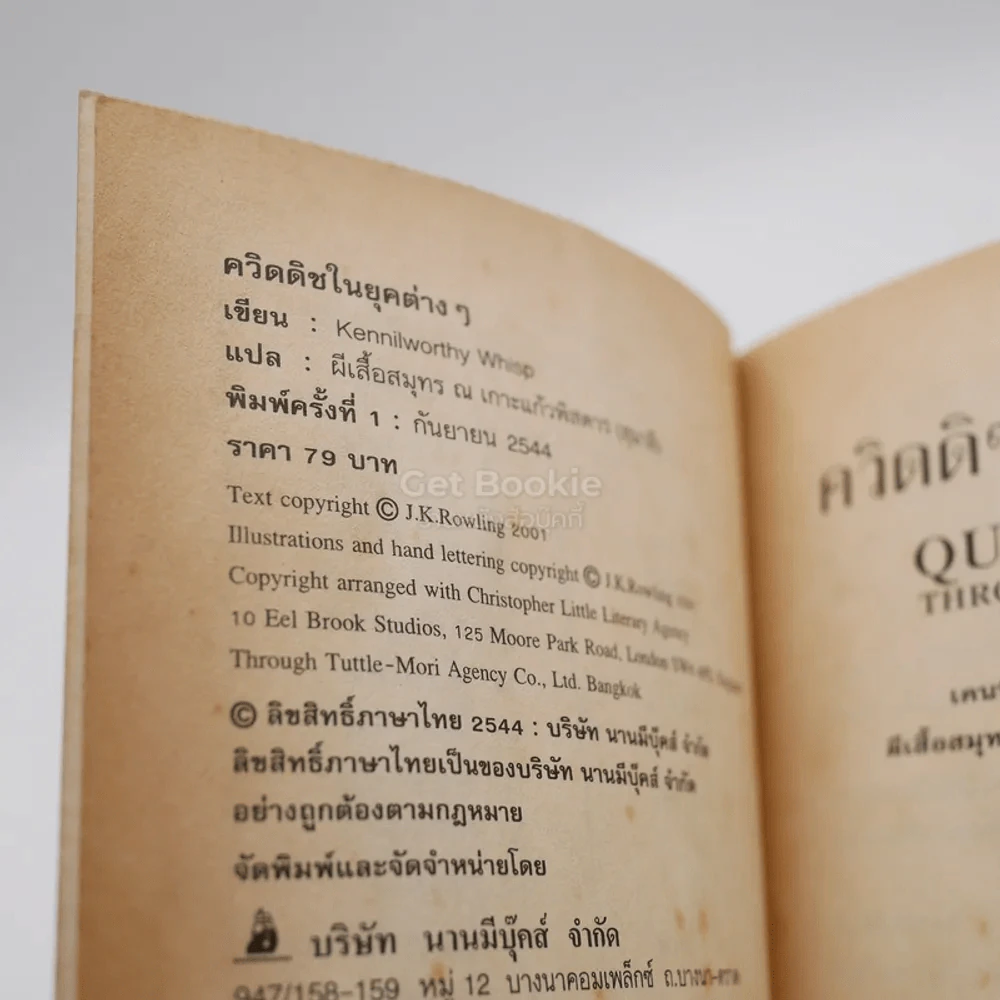 ควิดดิชในยุคต่าง ๆ
เขียน : Kennilworthy Whisp
แปล : ผีเสื้อสมุทร ณ เกาะแก้วพิสดาร
พิมพ์ครั้งที่ 1 : กันยายน 2544
ราคา 79 บาท
Get Bookie
Text copyright © J.K.Rowling 2001
Illustrations and hand lettering copyright © J.K.Rowling
Copyright arranged with Christopher Little Literary Agency
10 Eel Brook Studios, 125 Moore Park Road, London
Through Tuttle-Mori Agency Co., Ltd. Bangkok
© ลิขสิทธิ์ภาษาไทย 2544 : บริษัท นานมีบุ๊คส์ จำกัด
ลิขสิทธิ์ภาษาไทยเป็นของบริษัท นานมีบุ๊คส์ จำกัด
อย่างถูกต้องตามกฎหมาย
จัดพิมพ์และจัดจำหน่ายโดย
บริษัท นานมีบุ๊คส์ จำกัด
947/158-159 หมู่ 12 บางนาคอมเพล็กซ์
ควิดดิ
QU
THRO
ผีเสื้อสมุท